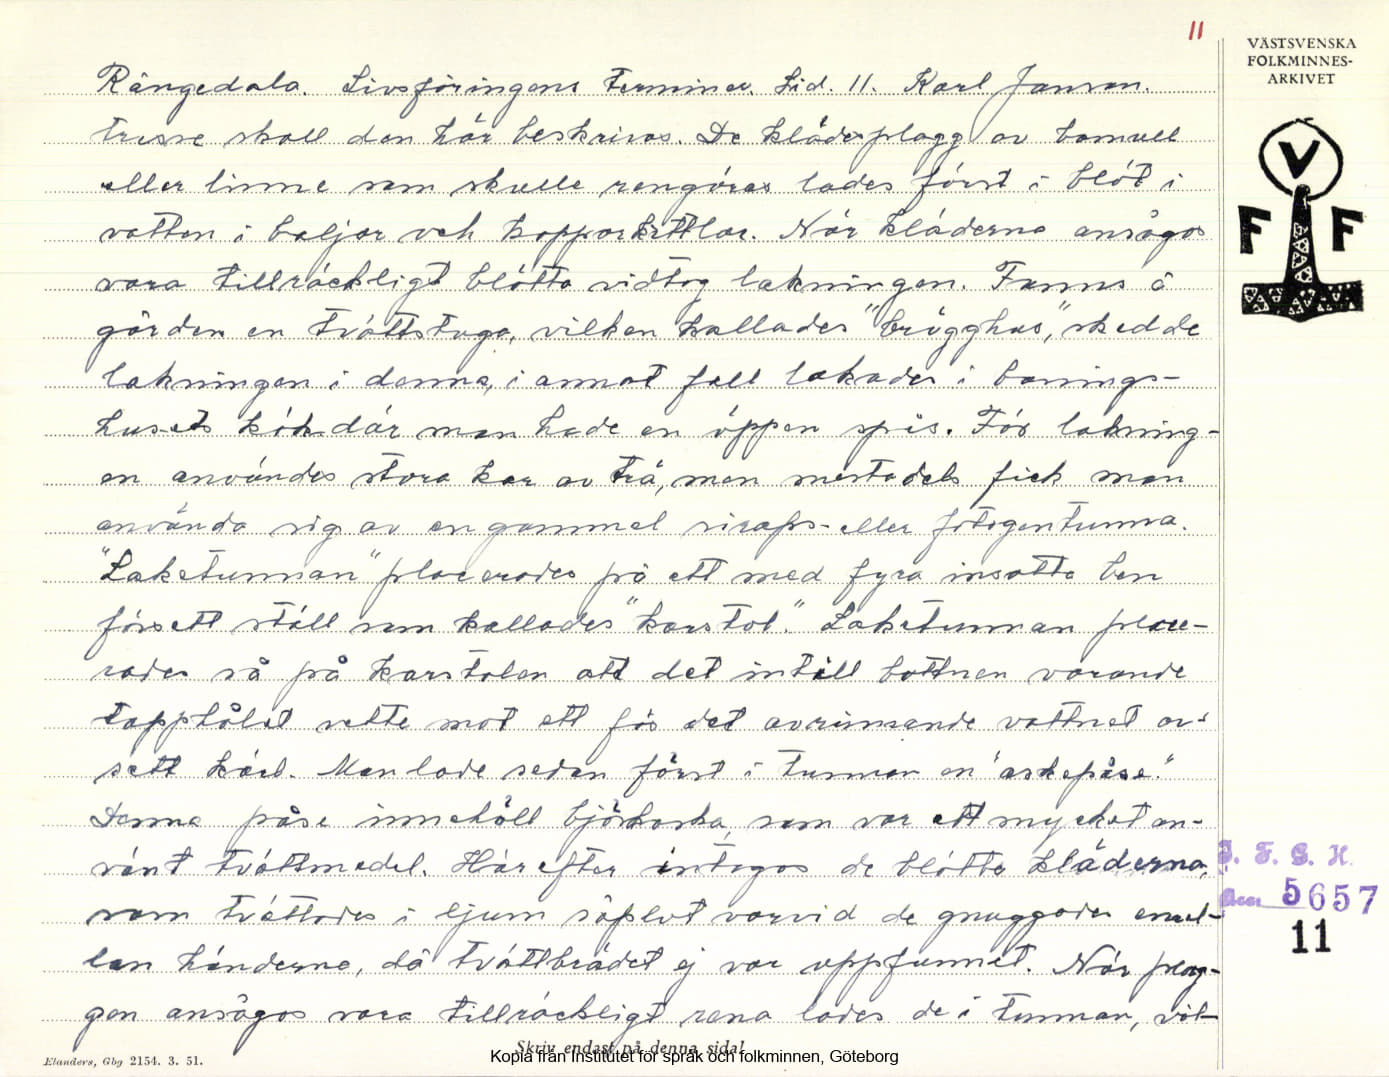 11
VÄSTSVENSKA
FOLKMINNES-
ARKIVET
V
F F
Rångedala. Livsföringens terminer. Sid. 11. Karl Janson.
skall den här beskrivas. De klädesplagg av bomull
eller linne som skulle rengöras lades först i blöt i
vatten i baljor och kopparkittlar. När kläderna ansågos
vara tillräckligt blötta vidtog lakningen. Fanns å
gården en tvättstuga, vilken kallades "brygghus", skedde
lakningen i denna, i annat fall lakades i bonings-
husets kök där man hade en öppen spis. För lakning-
en användes stora kar av trä, men mestadels fick man
använda sig av en gammel siraps- eller fotogentunna.
"Laketunnan" placerades på ett med fyra insatta ben
försett ställ som kallades "karstol". Laketunnan place-
rades så på karstolen att det intill bottnen varande
tapphålet vette mot ett för det avrinnande vattnet av-
sett kärl. Man lade sedan först i tunnan en "askepåse".
Denna påse innehöll björkaska, som var ett mycket an-
vänt tvättmedel. Härefter intogos de blötta kläderna,
som tvättades i ljum såplut varvid de gnuggades emel-
lan händerna, då tvättbrädet ej var uppfunnet. När plag-
gen ansågos vara tillräckligt rena lades de i tunnan, vil-
I. F. G. H.
5657
11
Skriv endast på denna sida!
Elanders, Gbg 2154. 3. 51.
Kopia från Institutet för språk och folkminnen, Göteborg